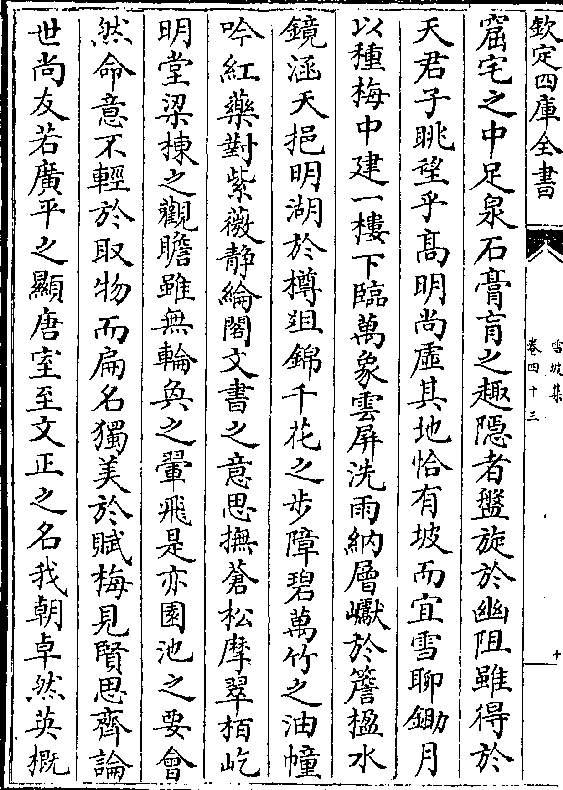 欽定四庫全書
雪坡集
卷四十三
十
窟宅之中足泉石膏肓之趣隱者盤旋於幽阻雖得於
天君子眺望乎髙明尚虛其地恰有坡而宜雪聊鋤月
以種梅中建一樓下臨萬象雲屏洗雨納層巘於簷楹水
鏡涵天挹明湖於樽俎錦千花之步障碧萬竹之油幢
吟紅藥對紫薇静綸閣文書之意思撫蒼松摩翠栢屹
明堂梁棟之觀瞻雖無輪奐之翬飛是亦園池之要會
然命意不輕於取物而扁名獨美於賦梅見賢思齊論
世尚友若廣平之顯唐室至文正之名我朝卓然英概